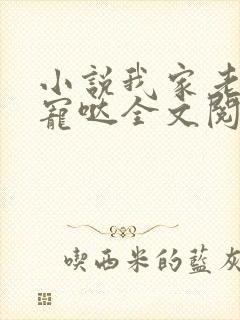 小説我家老
寵哒全文閱
喫西米的藍灰